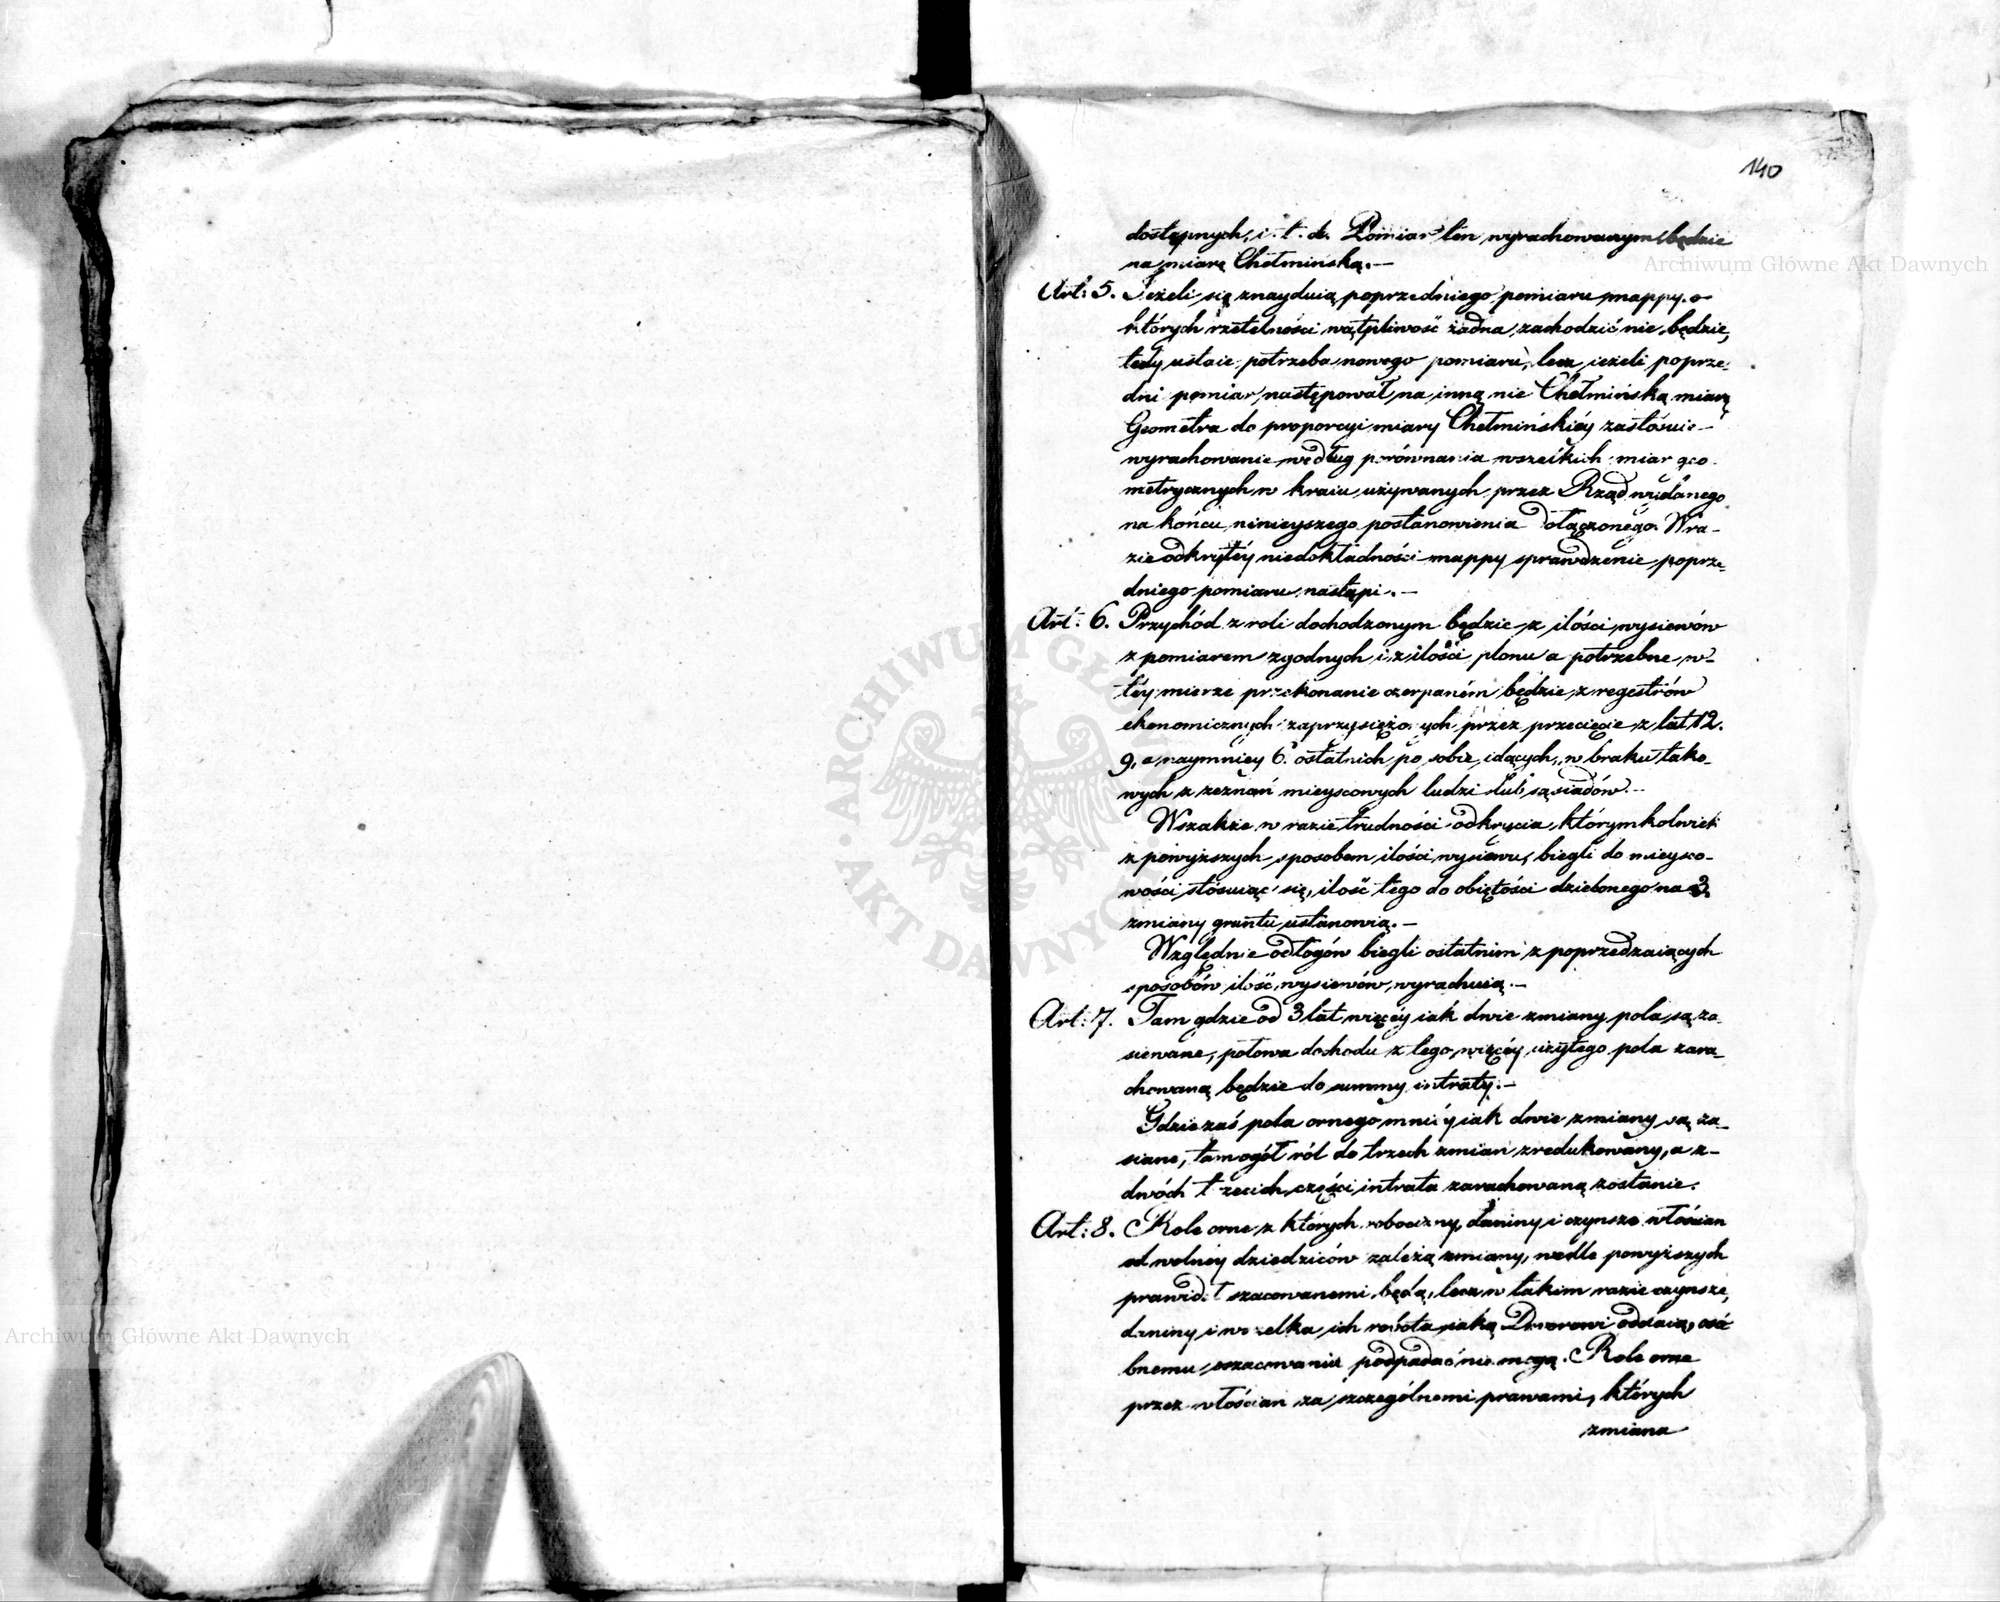 140
dostępnych, i. t. d. Pomiar ten wyrachowanym będzie
na miarę Chełmińską.—
Art: 5. Jeżeli się znayduią poprzedniego pomiaru mappy, o
których rzetelności wątpliwość żadna zachodzić nie będzie,
tedy ustaie potrzeba nowego pomiaru, lecz ieżeli poprze-
dni pomiar następował na inną nie Chełmińską miarę
Geometra do proporcyi miary Chełmińskiéy zastósuie
wyrachowanie według porównania wszelkich miar geo-
metrycznych w kraiu używanych przez Rząd wydanego
na końcu ninieyszego postanowienia dołączonego. W ra-
zie odkrytéy niedokładności mappy sprawdzenie poprze-
dniego pomiaru nastąpi.—
Art: 6. Przychód z roli dochodzonym będzie z ilości wysiewów
z pomiarem zgodnych i z ilości plonu a potrzebne w
téy mierze przekonanie czerpaném będzie z regestrów
ekonomicznych zaprzysiężonych przez przecięcie z lat 12.
9, a naymniey 6. ostatnich po sobie idących, w braku tako-
wych z zeznań mieyscowych ludzi lub sąsiadów.—
Wszakże w razie trudności odkrycia którymkolwiek
z powyższych sposobem ilości wysiewu, biegli do mieysco-
wości stósuiąc się, ilość tego do obiętości dzielonego na 3
zmiany gruntu ustanowią.—
Względnie odłogów biegli ostatnim z poprzedzaiących
sposobów ilość wysiewów wyrachuią.—
Art: 7. Tam gdzie od 3 lat więcéy iak dwie zmiany pola są za-
siewane, połowa dochodu z tego więcéy użytego pola zara-
chowaną będzie do summy intraty.—
Gdzie zaś pola ornego mniéy iak dwie zmiany są za-
siane, tam ogół ról do trzech zmian zredukowany, a z
dwóch trzecich części intrata zarachowaną zostanie.
Art: 8. Role orne z których robocizny, daniny i czynsze włościan
od wolnéy dziedziców zależą zmiany, wedle powyższych
prawideł szacowanemi będą, lecz w takim razie czynsze,
daniny i wszelka ich robota iaką Dworowi oddaią, osó-
bnemu szacowaniu podpadać nie mogą. Role orne
przez włościan za szczególnemi prawami, których
zmiana
Archiwum Główne Akt Dawnych
Archiwum Główne Akt Dawnych
ARCHIWUM GŁÓWNE AKT DAWNYCH